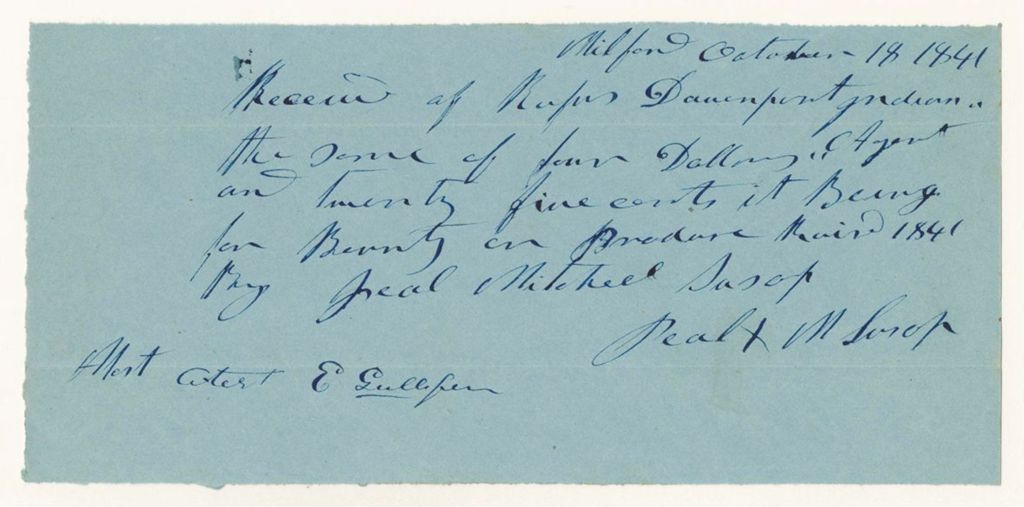 Milford October 18 1841
Receivd of Rufus Davenport Indian
the some of four Dollars & Agent
and twenty five cents it Being
for Bounty on Produce Raisd 1841
By Peal Mitchell Susop
Peal X M Susop
Atest E